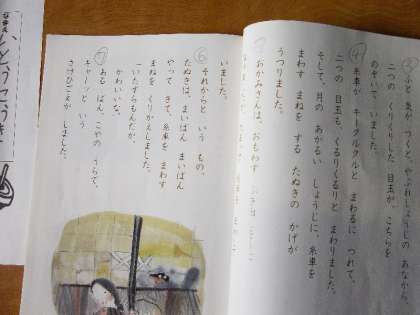 ふと、気が つくと、やぶれしょうじの あなから、
二つの くりくりした 目玉が、こちらを
のぞいて いました。
④
糸車が キークルクルと まわるに つれて、
二つの 目玉も、くるりくるりと まわりました。
そして、月の あかるい しょうじに、糸車を
まわす まねを する たぬきの かげが
うつりました。
⑤
おかみさんは、おもわず
いました。
⑥
それからと いう もの、
たぬきは、まいばん まいばん
やって きて、糸車を まわす
まねを くりかえしました。
「いたずらもんだが、
かわいいな。」
⑦
ある ばん、こやの うらで、
キャーッと いう
さけびごえが しました。